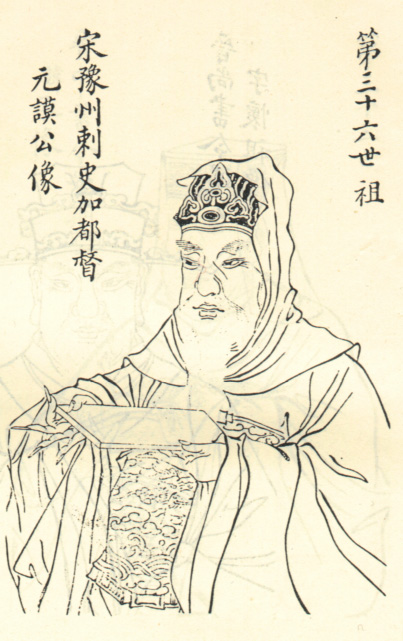 第三十六世祖
宋豫州刺史加都督
元謨公像